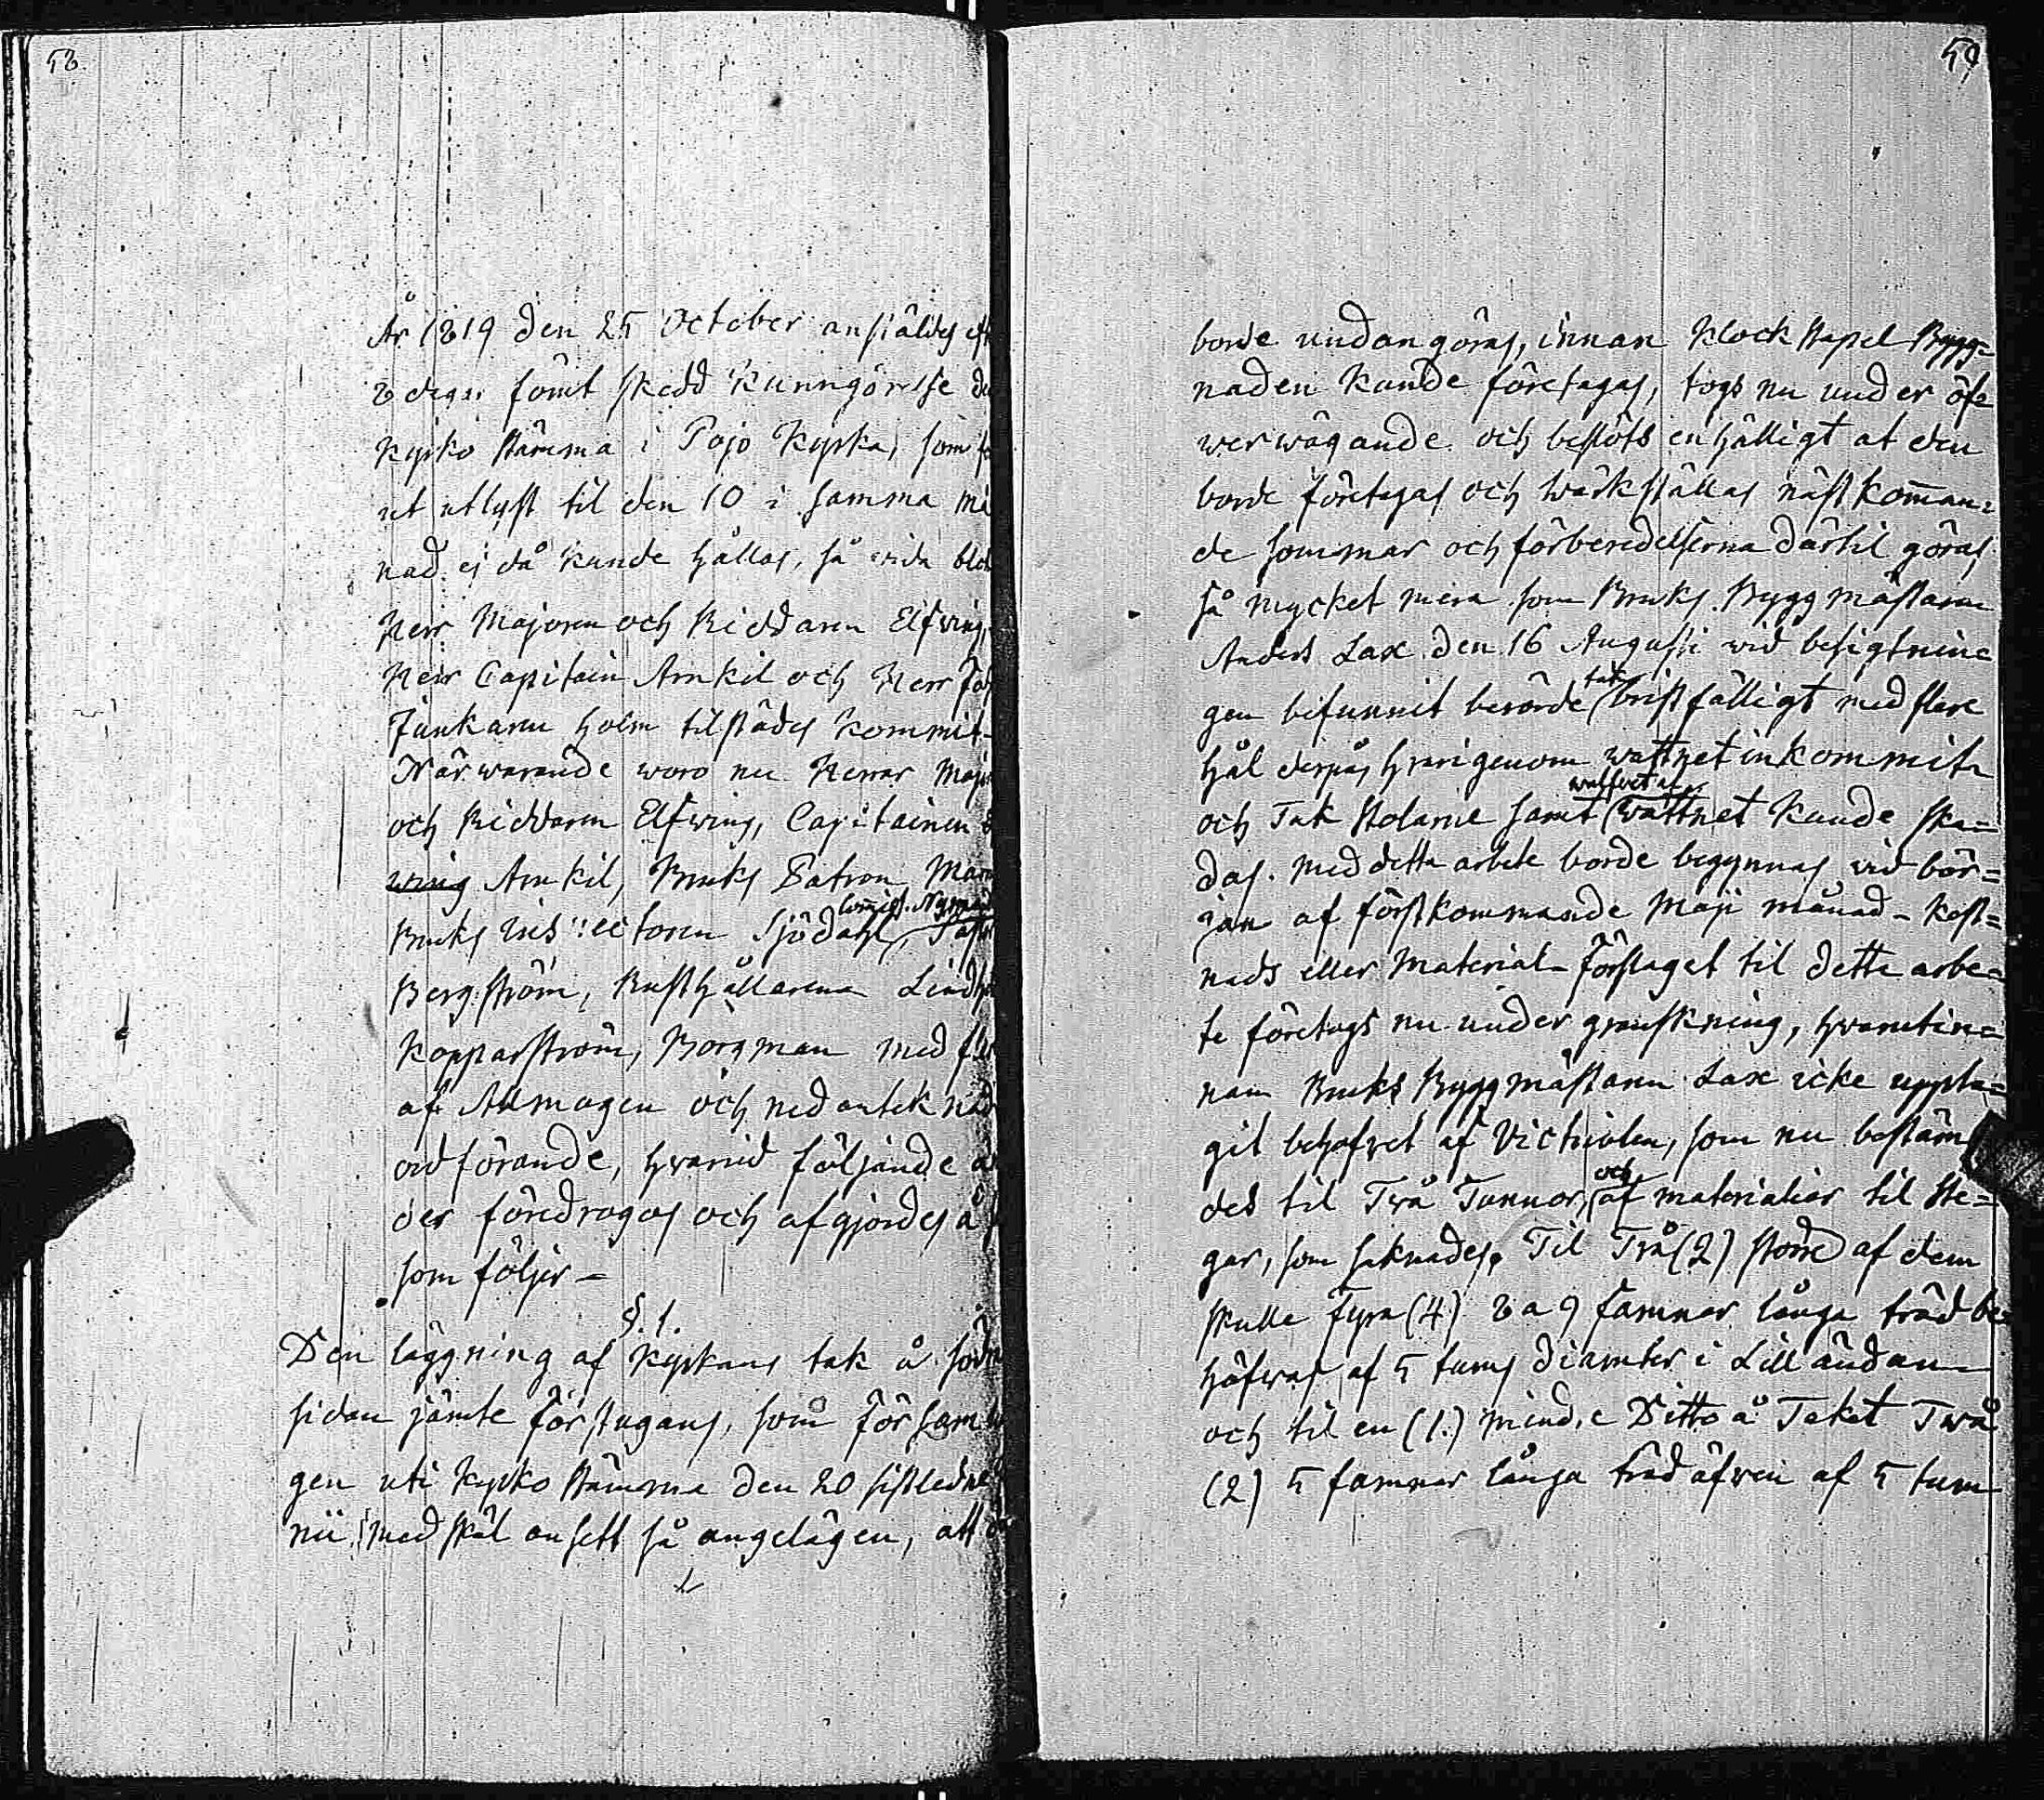 58.
År 1819 den 25 October anstäldes eft
8 dagar förut skedd Kunngörelse de
Kyrko stämma i Pojo Kyrka, som f
ut utlyst til den 10 i samma må
nad ej då kunde hållas, så vida
Herr Majoren och Riddaren Elfving,
Herr Capitain Arnkil och Herr
Junkaren Holm tilstädes kommit.
Närwarande woro nu Herrar Majo
och Riddaren Elfwing, Capitainen
wing Arnkil, Bruks Patron
Commiss. Nyman
Bruks Inspectoren Sjödahl,
Bergström, Rusthållarena Lindh
Kopparström, Borgman med fl
af Allmogen och nedantecknad
ordförande, hvarvid följande
der föredrogos och afgjordes å s
som följer -
§. 1.
Den läggning af Kyrkans tak å södra
sidan jämte förstugans, som försam
gen uti Kyrko stämma den 20 sistledne
nii med skäl ansett så angelägen, att
59
borde undangöras, innan Klock stapel Bygg=
naden Kunde företagas, togs nu under öf=
werwägande och beslöts enhälligt at den
borde företagas och wärkställas nästkomman=
de sommar och förberedelserna därtil göras
så mycket mera som Bruks Byggmästaren
Anders Lax den 16 Augusti wid besigtnin=
gen befunnit berörde tak bristfälligt med flere
hål derpå, hvarigenom wattnet inkommit
hwalfvet af
och Tak stolarne samt wattnet kunde ska=
das. Med detta arbete borde begynnas wid bör=
jan af förstkommande Maji månad - Kost=
nads eller Material-förslaget til detta arbe=
te företogs nu under granskning, hvarutin=
nan Bruks Byggmästaren Lax icke uppta=
git behofvet af Victriolen, som nu bestäm
des til Två Tunnor, och af materialier til Ste=
gar, som saknades. Til Två (2) större af dem
skulle Fyra (4) 8 a 9 famnar långa träd be=
höfwas af 5 tums diameter i Lilländan
och til en (1.) mindre Ditto å Taket Två
(2) 5 famnar långa träd äfven af 5 tum